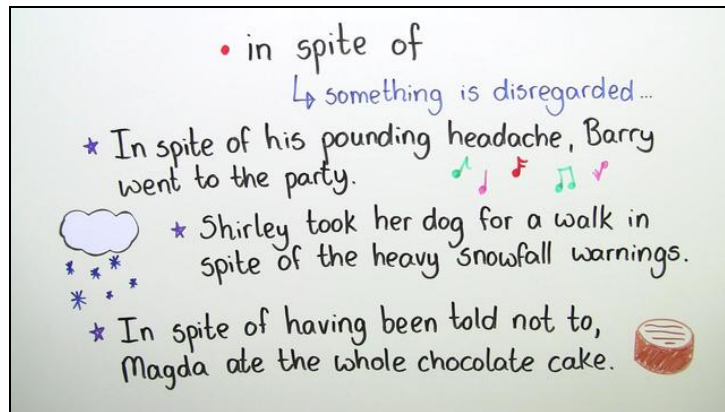 • in spite of
↳ something is disregarded...
★ In spite of his pounding headache, Barry
went to the party.
★ Shirley took her dog for a walk in
spite of the heavy snowfall warnings.
★ In spite of having been told not to,
Magda ate the whole chocolate cake.